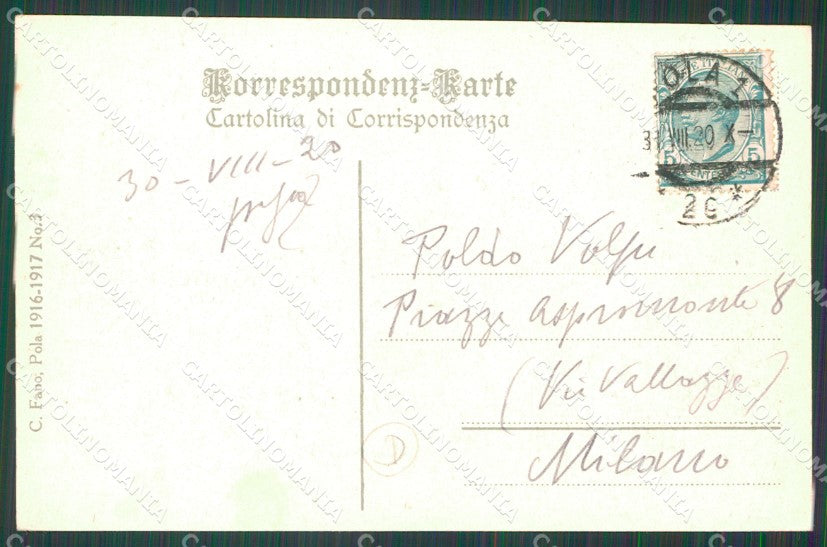 Korrespondenz-Karte
Cartolina di Corrispondenza
30-VIII-20
Poldo Volpi
Piazze Aspromonte 8
(Via Vallazze)
Milano
C. Fano, Pola 1916-1917 No.3
OLA 1
31 VIII.20 X-
2C *
5 5
D
CARTOLINOMANIA